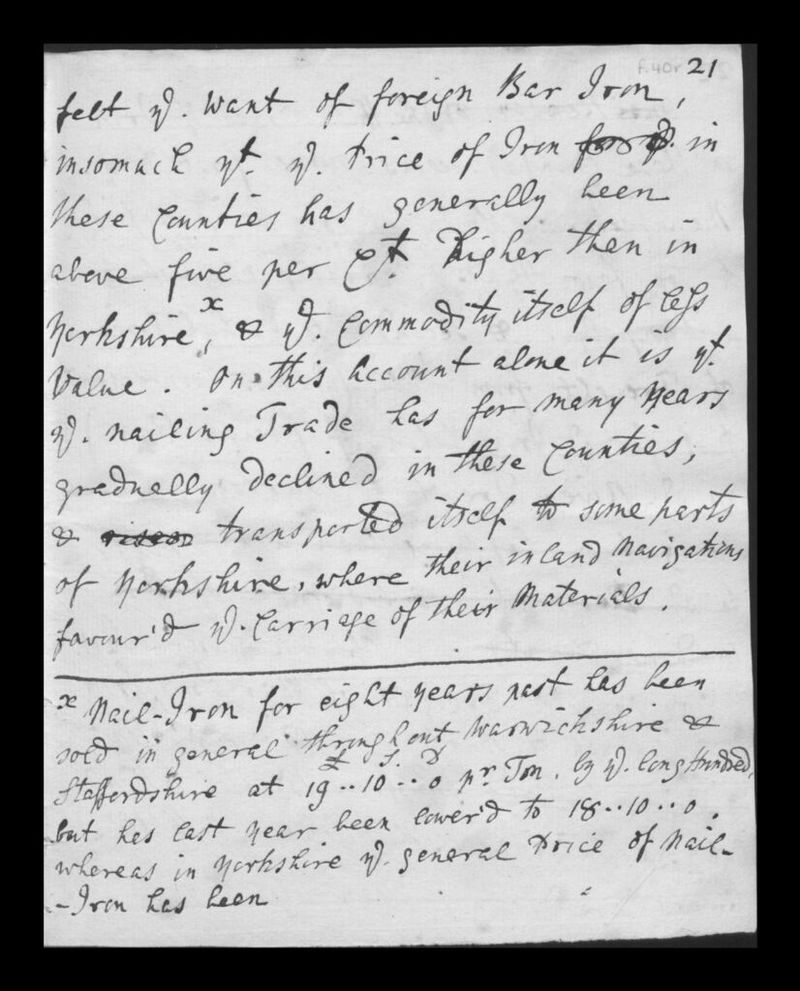 f.40r 21
felt ye. want of foreign Bar Iron,
insomuch yt. ye. Price of Iron for ye. in
these Counties has generally been
above five per Ct. higher then in
Yorkshire,x & ye. Commodity itself of less
Value. On this Account alone it is yt.
ye. nailing Trade has for many Years
gradually declined in these Counties,
& risen transported itself to some parts
of Yorkshire, where their inland Navigations
favour'd ye. Carriage of their Materials.
x Nail-Iron for eight years past has been
sold in general throughout Warwickshire &
Staffordshire at 19..10..0 pr. Ton, by ye. long Hundred,
£ S. D
but has last year been lower'd to 18..10..0.
whereas in Yorkshire ye. general Price of Nail-
-Iron has been